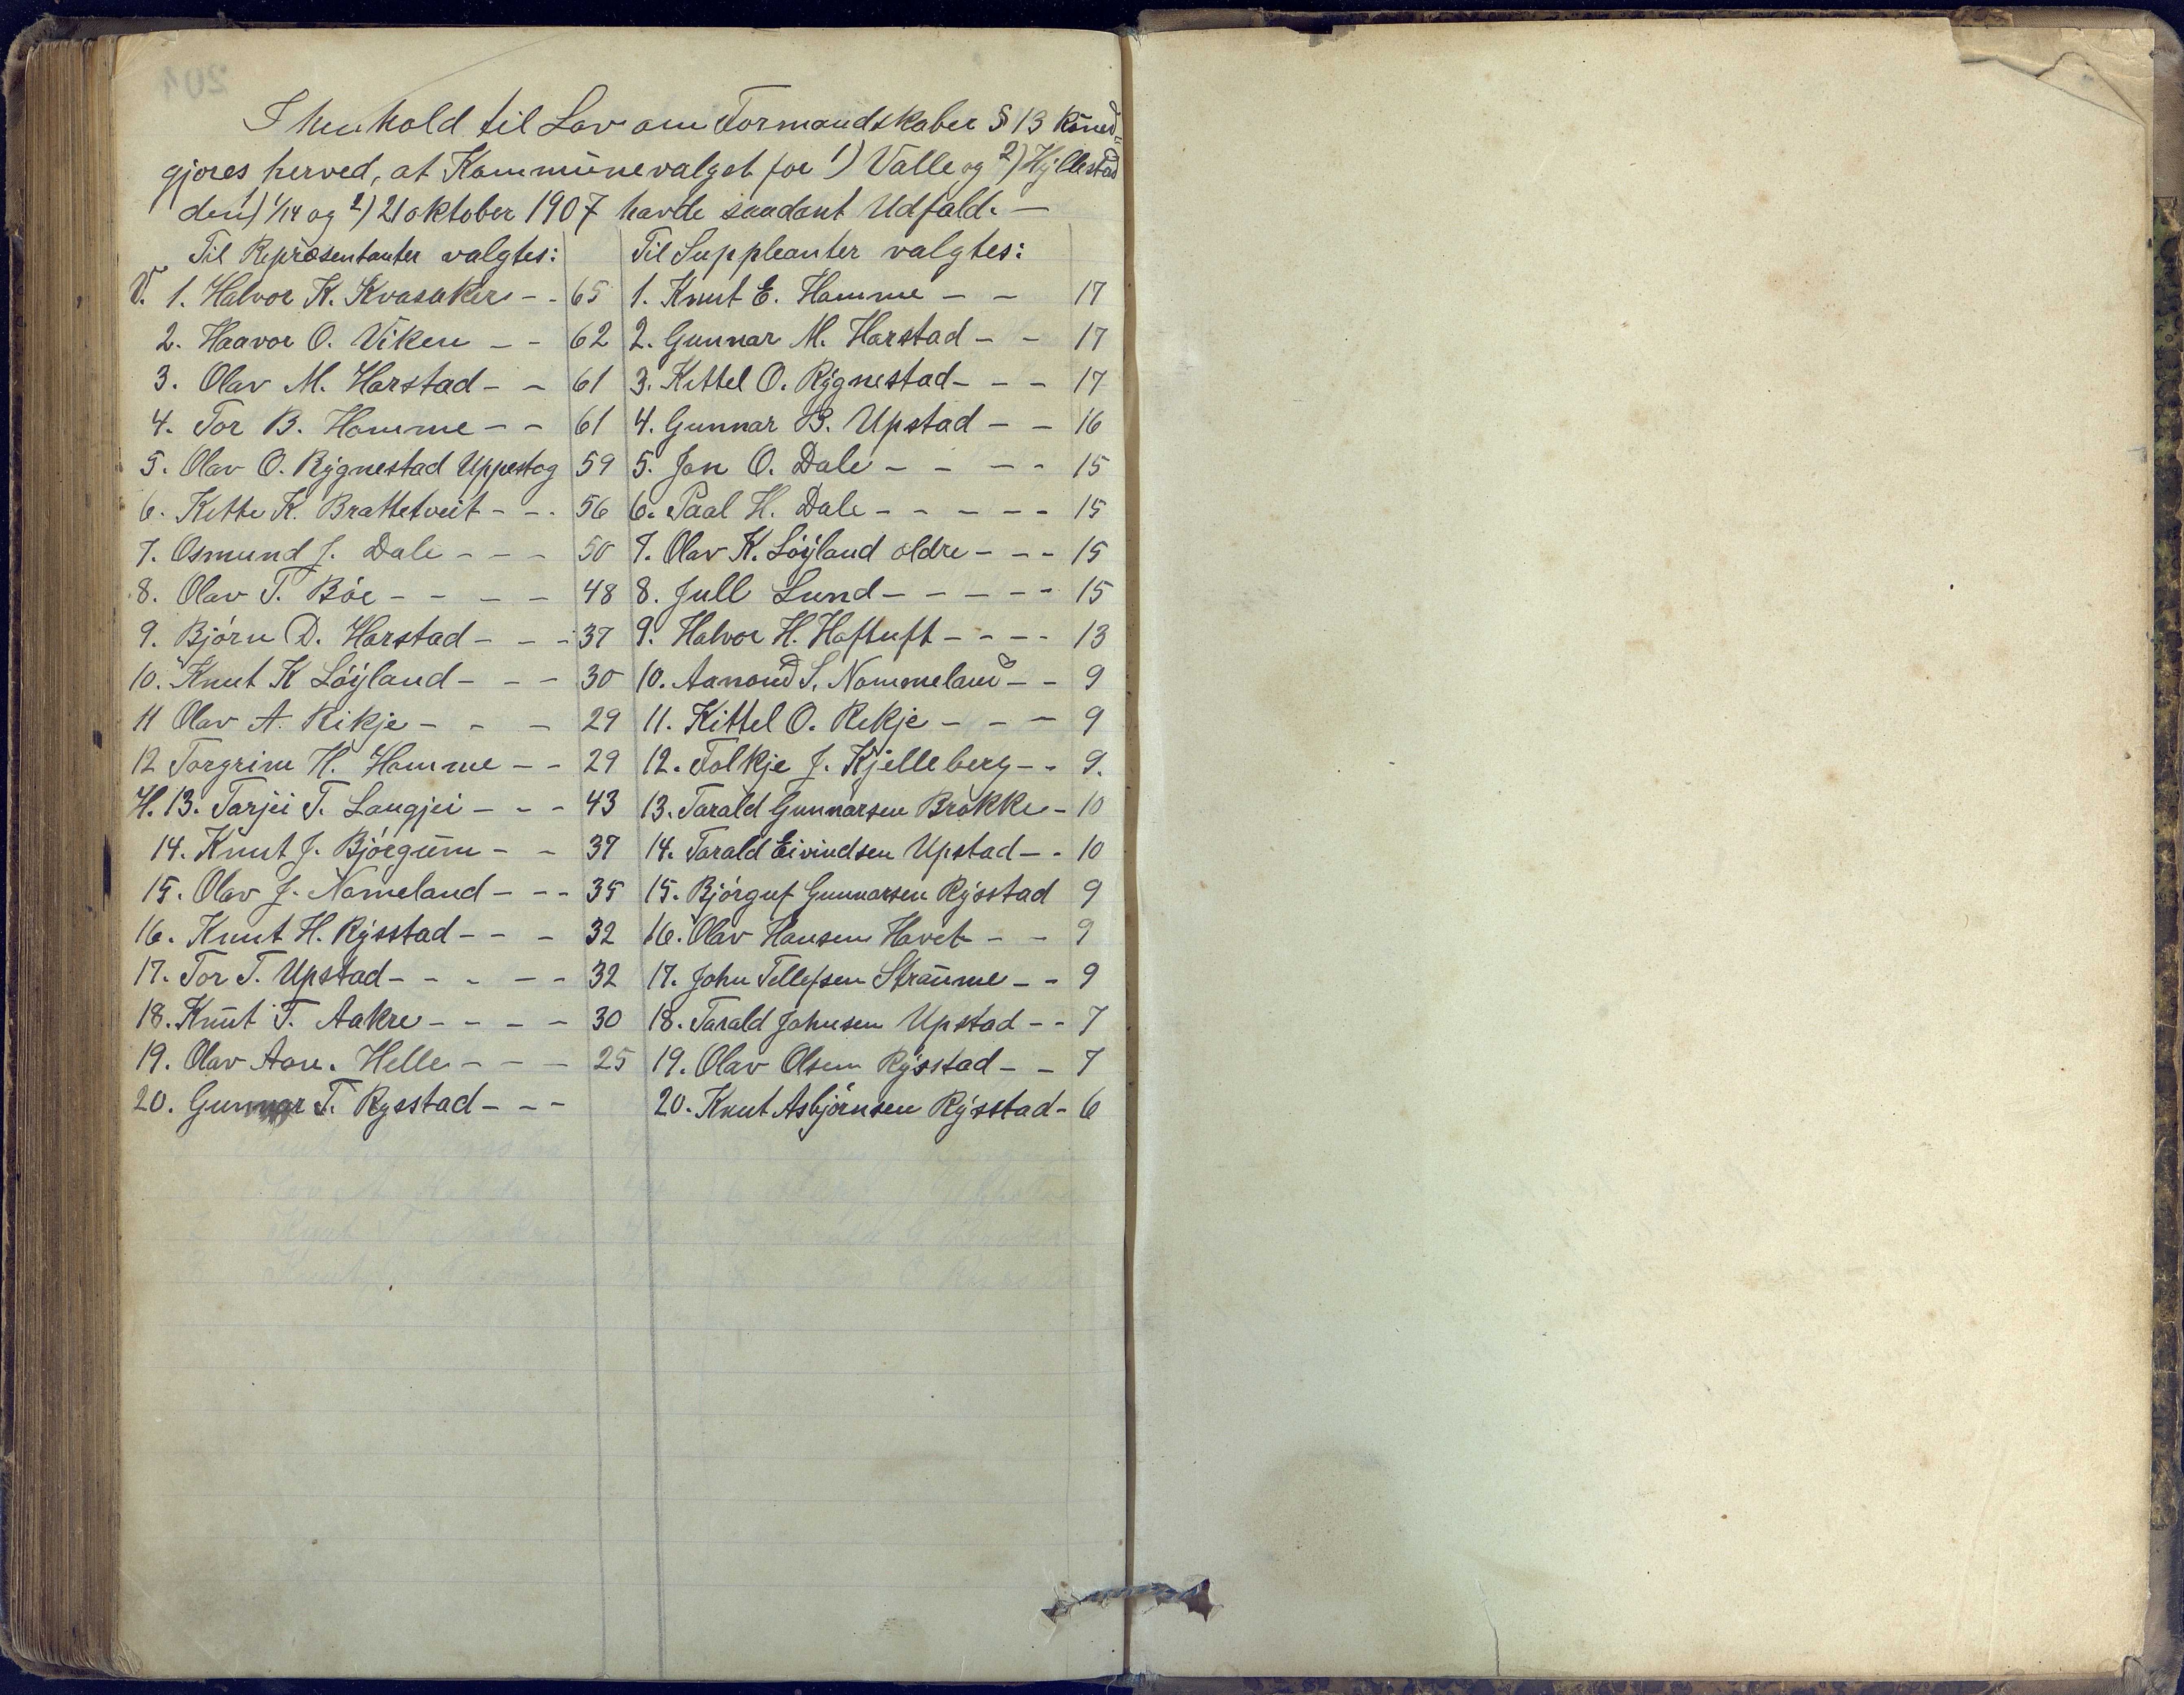 I henhold til Lov om Formandskaber § 13 kund-
gjøres herved, at Kommunevalget for 1) Valle og 2) Hyllestad
den 1) 14 og 2) 21 oktober 1907 havde saadant Udfald. —
Til Repræsentanter valgtes: Til Suppleanter valgtes:
V. 1. Halvor K. Kvasaker - - 65 1. Knut E. Homme - - 17
2. Haavor O. Viken - - 62 2. Gunnar M. Harstad - - 17
3. Olav M. Harstad - - 61 3. Kittel O. Rygnestad - - - 17
4. Tor B. Homme - - 61 4. Gunnar B. Upstad - - 16
5. Olav O. Rygnestad Uppestog 59 5. Jon O. Dale - - - - 15
6. Kitte K. Brattetveit - - - 56 6. Paal H. Dale - - - - - 15
7. Osmund J. Dale - - - 50 7. Olav K. Løyland ældre - - - 15
8. Olav T. Bøe - - - - 48 8. Jull Lund - - - - - 15
9. Bjørn D. Harstad - - - 37 9. Halvor H. Haftuft - - - - 13
10. Knut K Løyland - - - 30 10. Aanond S. Nommeland - - 9
11 Olav A. Rikje - - - 29 11. Kittel O. Rekje - - - 9
12 Torgrim H. Homme - - 29 12. Folkje J. Kjelleberg - - 9.
H. 13. Tarjei T. Langjei - - - 43 13. Tarald Gunnarsen Brokke - 10
14. Knut J. Bjørgum - - 37 14. Tarald Eivindsen Upstad - - 10
15. Olav J. Nomeland - - - 35 15. Bjørguf Gunnarsen Rysstad 9
16. Knut H. Rysstad - - - 32 16. Olav Hansen Hovet - - 9
17. Tor T. Upstad - - - - - 32 17. John Tellefsen Straume - - 9
18. Knut T. Aakre - - - - 30 18. Tarald Johnsen Upstad - - 7
19. Olav Aan. Helle - - - 25 19. Olav Olsen Rysstad - - 7
20. Gunnar T. Rysstad - - - 20. Knut Asbjørnsen Rysstad - 6